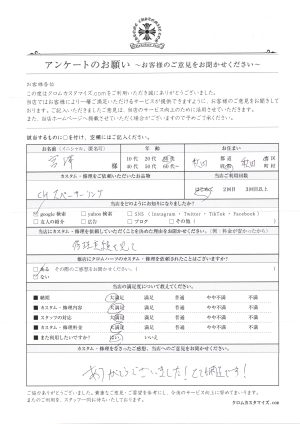 アンケートのお願い ～お客様のご意見をお聞かせください～
お客様各位
この度はクロムカスタマイズ.comをご利用いただき誠にありがとうございました。
当店ではお客様により一層ご満足いただけるサービスが提供できますように、お客様のご意見をお聞きして
おります。ご記入いただきましたご意見は、当店のサービス向上のために活用させていただきます。
また、当店ホームページへ掲載させていただく場合がございますので予めご了承ください。
該当するものに○を付け、空欄にはご記入ください。
お名前（イニシャル、匿名可） 年代 お住まい
様
10代 20代 30代
40代 50代 60代
秋田 都道府県 秋田 市区町村
カスタム・修理をご依頼いただいたお品物 当店ご利用回数
CH スペーサーリング はじめて 2回目 3回目以上
当店をどのようにお知りになりましたか？
google検索 yahoo検索 SNS（Instagram・Twitter・TikTok・Facebook）
友人の紹介 広告 ブログ その他（ ）
当店にカスタム・修理を依頼していただくことを決めた理由をお聞かせください（例：料金が安かったから）
修理実績を見て
他店にクロムハーツのカスタム・修理を依頼されたことはございますか？
ない
当店の満足度について教えてください。
■ 納期 大満足 満足 普通 やや不満 不満
■ カスタム・修理内容 大満足 満足 普通 やや不満 不満
■ スタッフの対応 大満足 満足 普通 やや不満 不満
■ カスタム・修理料金 大満足 満足 普通 やや不満 不満
■ また利用したいですか？ はい いいえ
カスタム・修理をされたご感想、当店へのご意見をお聞かせください
ありがとうございました！とても満足です！
ご協力ありがとうございました。貴重なご意見・ご要望を参考にし、今後のサービス向上に努めてまいります。
またのご利用を、スタッフ一同お待ちいたしております。
クロムカスタマイズ.com